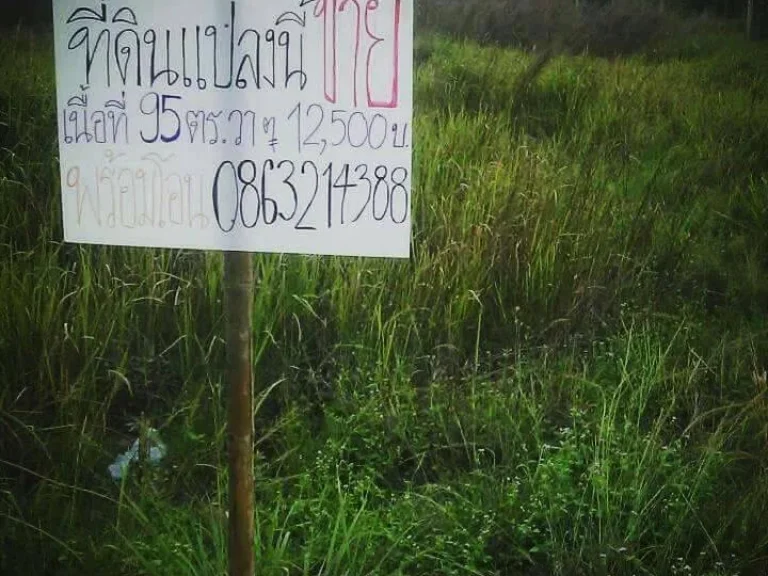 ที่ดินแปลงนี้ ขาย
เนื้อที่ 95 ตร.วา ๆ 12,500 บ.
พร้อมโอน 0863214388